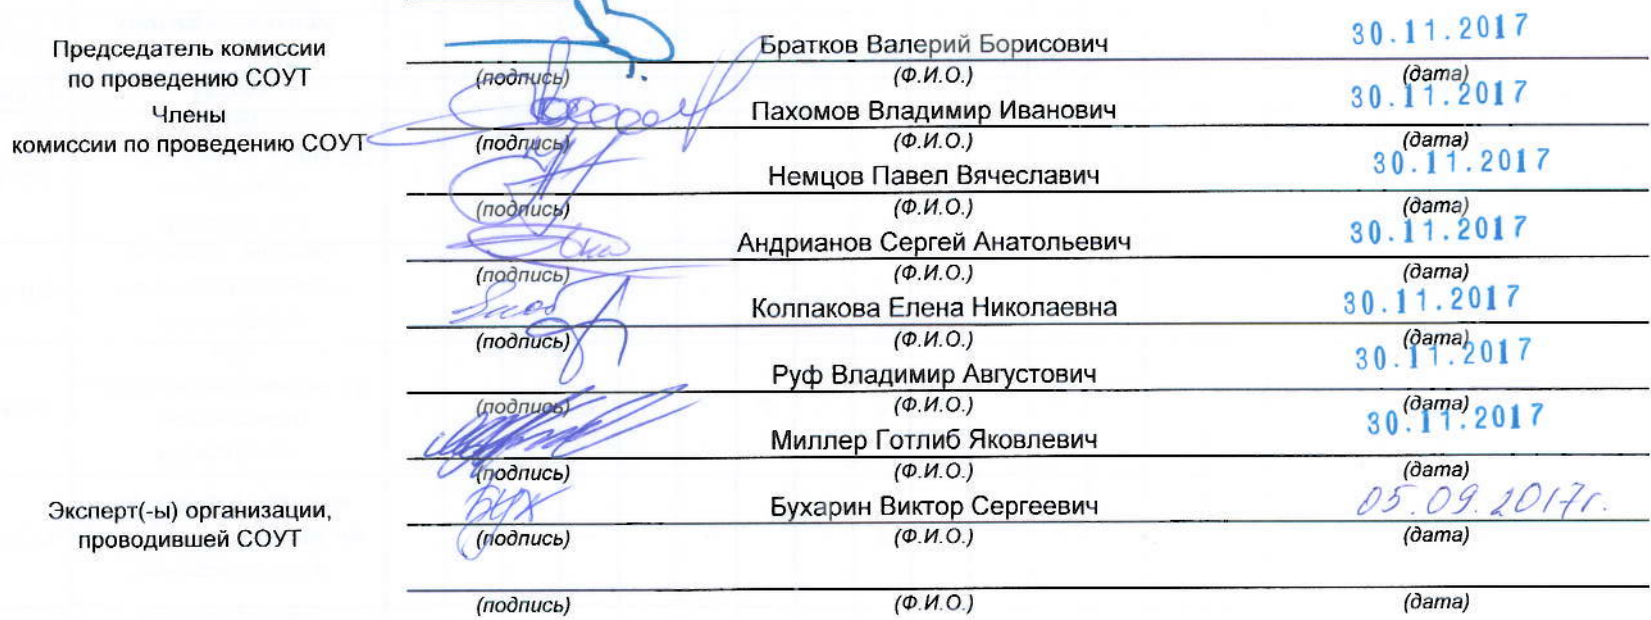 Председатель комиссии
по проведению СОУТ
Братков Валерий Борисович 30.11.2017
(подпись) (Ф.И.О.) (дата)
Члены
комиссии по проведению СОУТ
Пахомов Владимир Иванович 30.11.2017
(подпись) (Ф.И.О.) (дата)
Немцов Павел Вячеславич 30.11.2017
(подпись) (Ф.И.О.) (дата)
Андрианов Сергей Анатольевич 30.11.2017
(подпись) (Ф.И.О.) (дата)
Колпакова Елена Николаевна 30.11.2017
(подпись) (Ф.И.О.) (дата)
Руф Владимир Августович 30.11.2017
(подпись) (Ф.И.О.) (дата)
Миллер Готлиб Яковлевич 30.11.2017
(подпись) (Ф.И.О.) (дата)
Эксперт(-ы) организации,
проводившей СОУТ
Бух Бухарин Виктор Сергеевич 05.09.2017г.
(подпись) (Ф.И.О.) (дата)
(подпись) (Ф.И.О.) (дата)